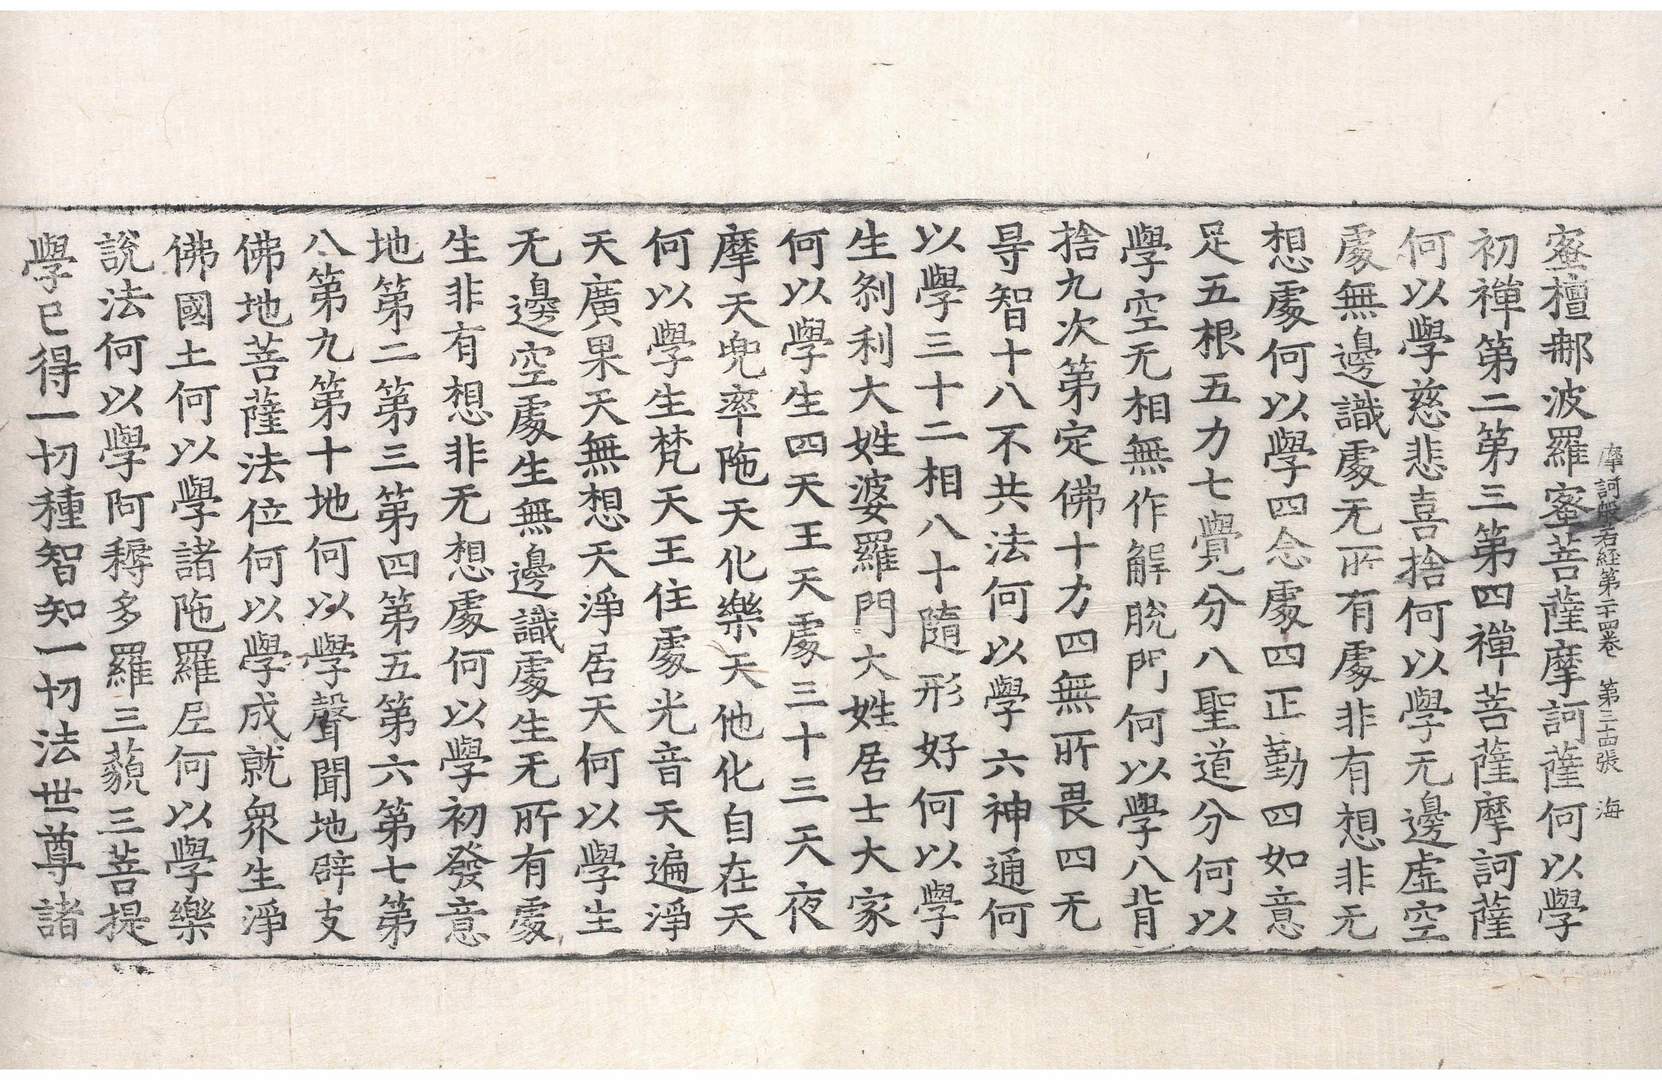 摩訶般若経第二十四卷 第三十四張 海
蜜檀那波羅蜜菩薩摩訶薩何以學
初禪第二第三第四禪菩薩摩訶薩
何以學慈悲喜捨何以學无邊虛空
處無邊識處无所有處非有想非无
想處何以學四念處四正勤四如意
足五根五力七覺分八聖道分何以
學空无相無作解脫門何以學八背
捨九次第定佛十力四無所畏四无
㝵智十八不共法何以學六神通何
以學三十二相八十隨形好何以學
生刹利大姓婆羅門大姓居士大家
何以學生四天王天處三十三天夜
摩天兜率陁天化樂天他化自在天
何以學生梵天王住處光音天遍淨
天廣果天無想天淨居天何以學生
无邊空處生無邊識處生无所有處
生非有想非无想處何以學初發意
地第二第三第四第五第六第七第
八第九第十地何以學聲聞地辟支
佛地菩薩法位何以學成就衆生淨
佛國土何以學諸陁羅尼何以學樂
說法何以學阿耨多羅三藐三菩提
學已得一切種智知一切法世尊諸